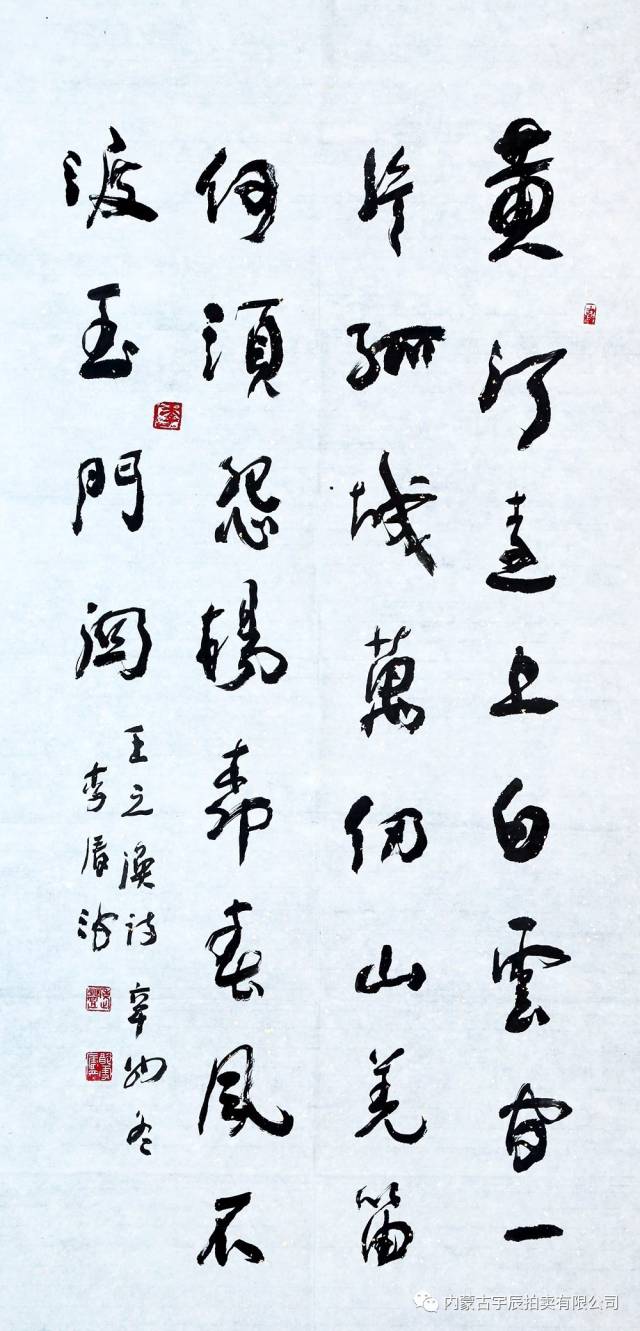 黄河遠上白雲間一
片孤城萬仞山羌笛
何須怨楊柳春風不
渡玉門關
王之渙詩辛卯冬
李
内蒙古宇辰拍卖有限公司